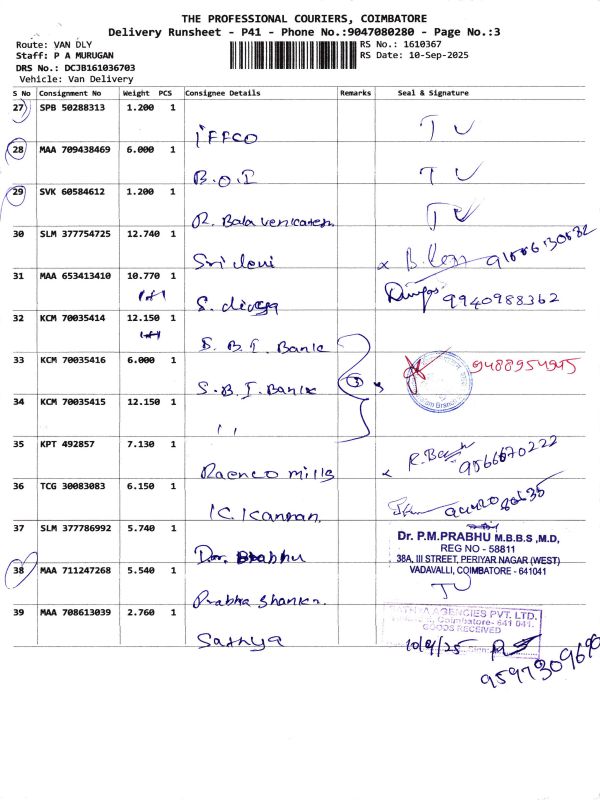 THE PROFESSIONAL COURIERS, COIMBATORE
Delivery Runsheet - P41 - Phone No.:9047080280 - Page No.:3
Route: VAN DLY RS No.: 1610367
Staff: P A MURUGAN RS Date: 10-Sep-2025
DRS No.: DCJB161036703
Vehicle: Van Delivery
S No Consignment No Weight PCS Consignee Details Remarks Seal & Signature
27 SPB 50288313 1.200 1
IFFCO TU
28 MAA 709438469 6.000 1
B.O.I TU
29 SVK 60584612 1.200 1
R. Bala venkatesh TU
30 SLM 377754725 12.740 1
Sri devi
31 MAA 653413410 10.770 1
1 of 1
S. divya 9940988362
32 KCM 70035414 12.150 1
1 of 1
S. B. I. Bank
33 KCM 70035416 6.000 1
S. B. I. Bank 3 9488954945
34 KCM 70035415 12.150 1
11
35 KPT 492857 7.130 1
Raenco mills 9566670222
36 TCG 30083083 6.150 1
K. Kannan.
37 SLM 377786992 5.740 1
Dr. Prabhu
Dr. P.M.PRABHU M.B.B.S ,M.D,
REG NO - 58811
38A, III STREET, PERIYAR NAGAR (WEST)
VADAVALLI, COIMBATORE - 641041
38 MAA 711247268 5.540 1
Prabha Shanker. TU
39 MAA 708613039 2.760 1
Sathya
SATHYA AGENCIES PVT. LTD.
Coimbatore- 641 041.
GOODS RECEIVED
10/9/25
9597309690